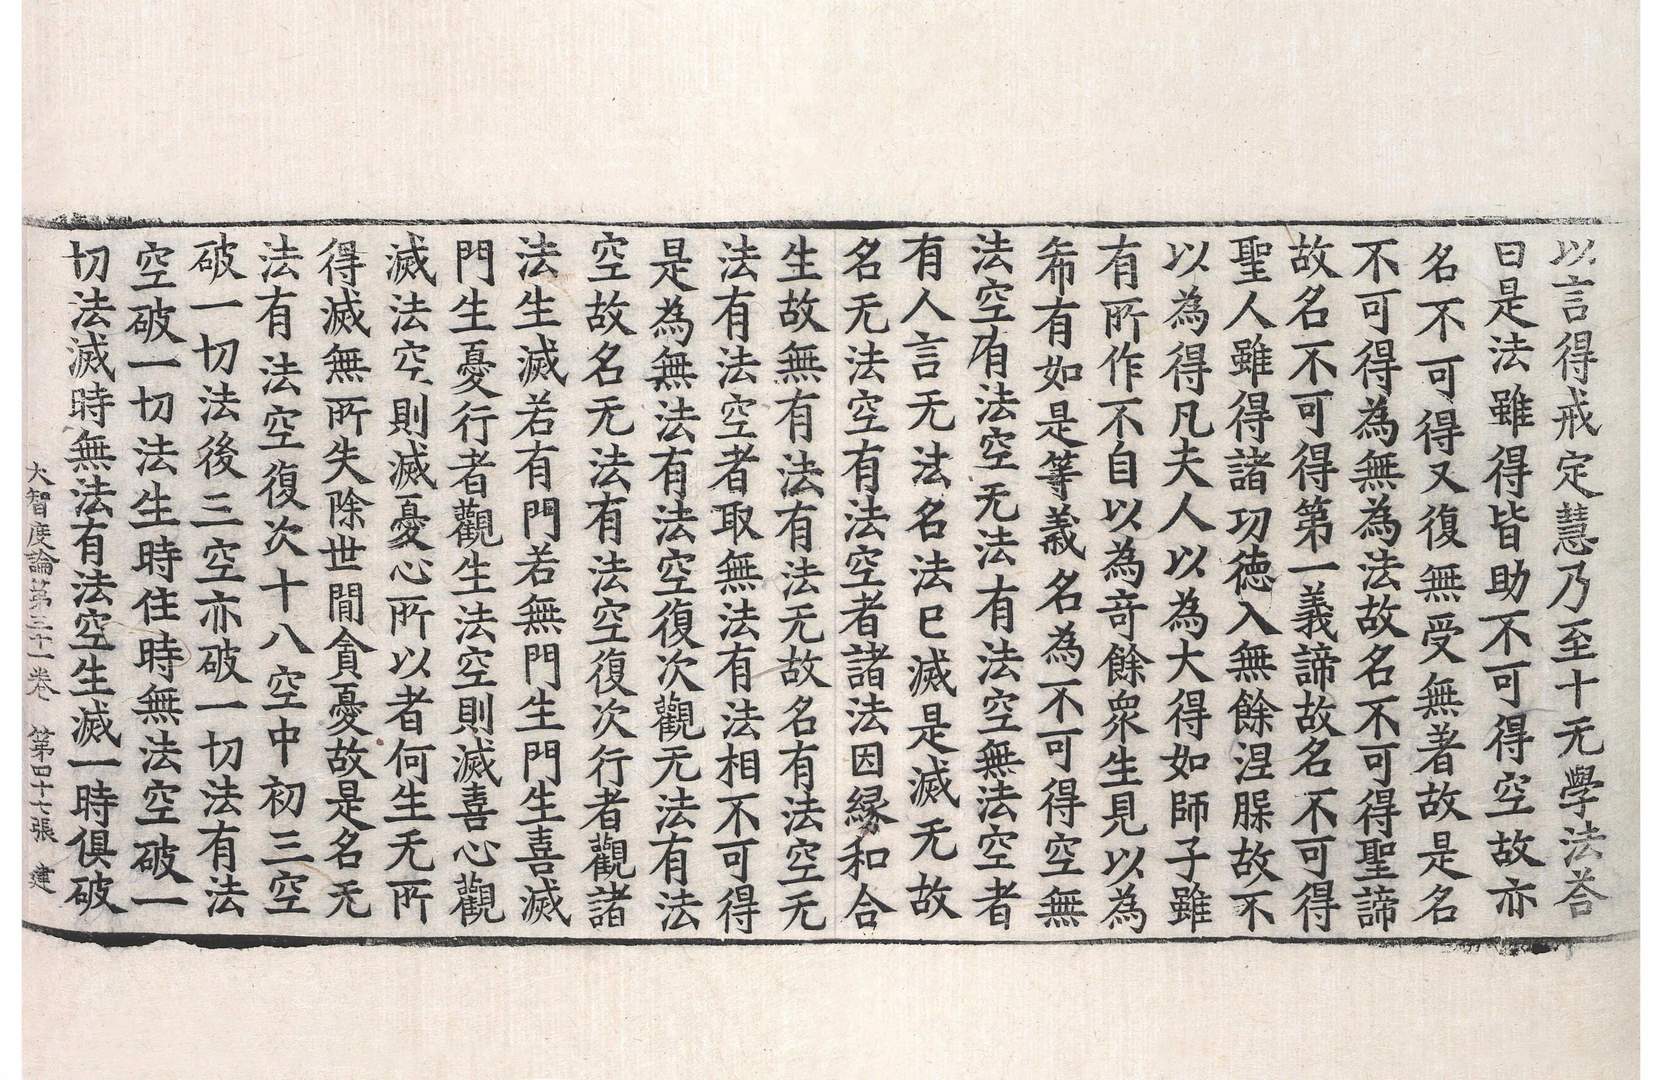 以言得戒定慧乃至十无學法荅
曰是法雖得皆助不可得空故亦
名不可得又復無受無著故是名
不可得為無為法故名不可得聖諦
故名不可得第一義諦故名不可得
聖人雖得諸功德入無餘涅槃故不
以為得凡夫人以為大得如師子雖
有所作不自以為奇餘衆生見以為
希有如是等義名為不可得空無
法空有法空无法有法空無法空者
有人言无法名法已滅是滅无故
名无法空有法空者諸法因縁和合
生故無有法有法无故名有法空无
法有法空者取無法有法相不可得
是為無法有法空復次觀无法有法
空故名无法有法空復次行者觀諸
法生滅若有門若無門生門生喜滅
門生憂行者觀生法空則滅喜心觀
滅法空則滅憂心所以者何生无所
得滅無所失除世間貪憂故是名无
法有法空復次十八空中初三空
破一切法後三空亦破一切法有法
空破一切法生時住時無法空破一
切法滅時無法有法空生滅一時俱破
大智度論第三十一卷 第四十七張 建